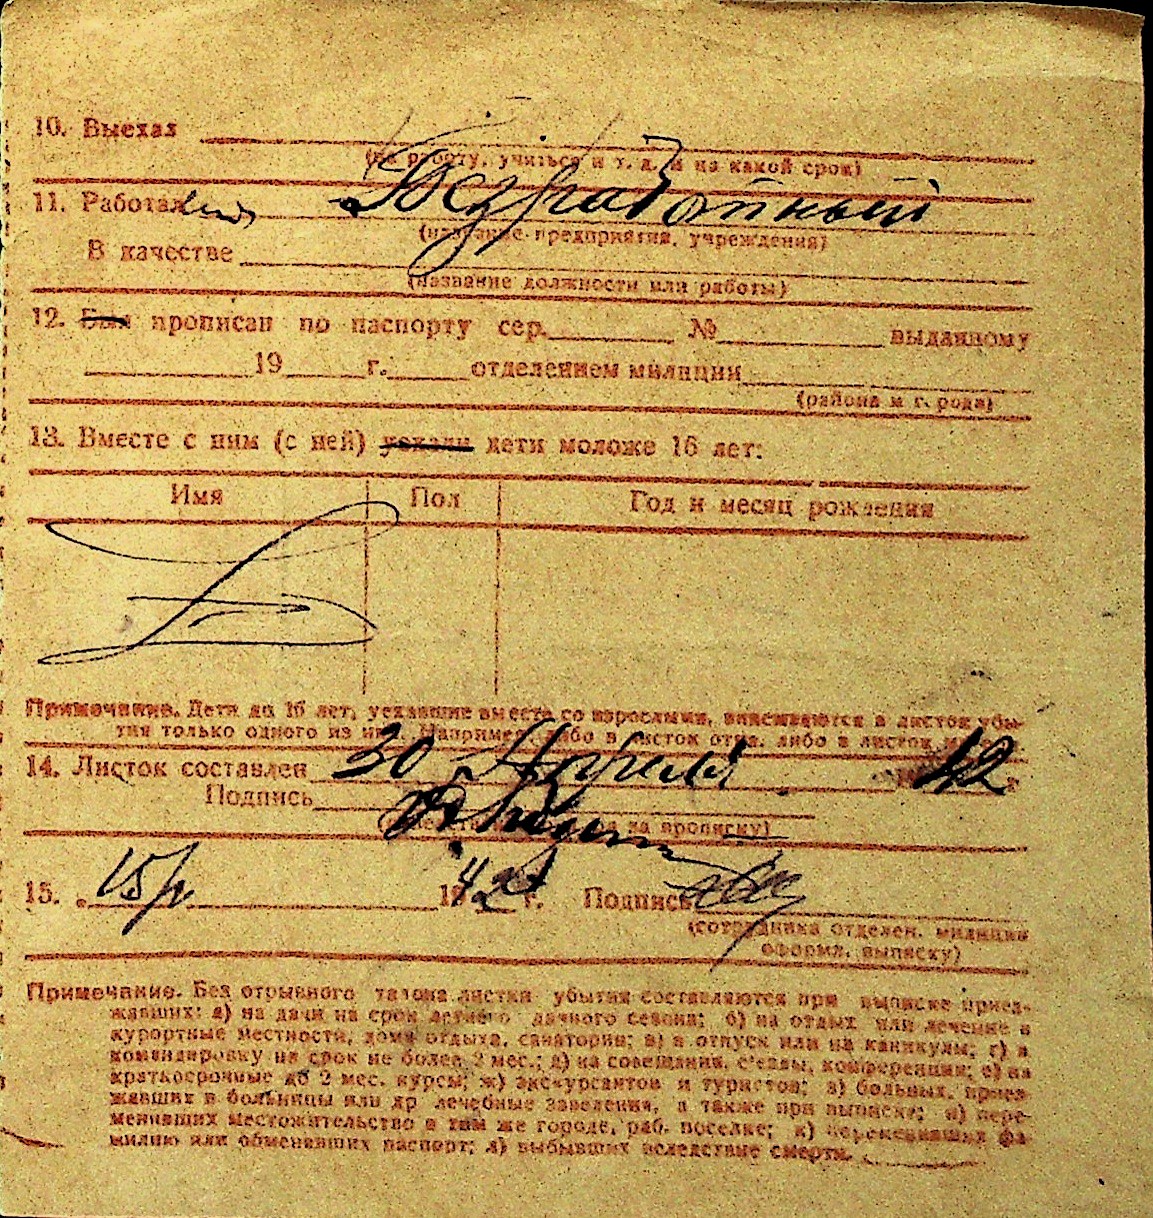 10. Выехал
(на работу, учиться и т. д. и на какой срок)
11. Работал Безработный
(название предприятия, учреждения)
В качестве
(название должности или работы)
12. Был прописан по паспорту сер. № выданному
19 г. отделением милиции
(района и г. рода)
13. Вместе с ним (с ней) уехали дети моложе 16 лет:
Имя Пол Год и месяц рождения
Примечание. Дети до 16 лет, уехавшие вместе со взрослыми, вписываются в листок убы-
тия только одного из них. Например, либо в листок отца, либо в листок
14. Листок составлен 30 Апреля 42
Подпись
за прописку)
15. 15/ 1942 г. Подпись
(сотрудника отделен. милиции
оформл. выписку)
Примечание. Без отрывного талона листки убытия составляются при выписке приез-
жавших: а) на дачи на срок летнего дачного сезона; б) на отдых или лечение в
курортные местности, дома отдыха, санатории; в) в отпуск или на каникулы; г) в
командировку на срок не более 2 мес.; д) на совещания, съезды, конференции; е) на
краткосрочные до 2 мес. курсы; ж) экскурсантов и туристов; з) больных, приез-
жавших в больницы или др лечебные заведения, а также при выписке; и) пере-
менивших местожительство в том же городе, раб. поселке; к) переменивших фа-
милию или обменявших паспорт; л) выбывших вследствие смерти.